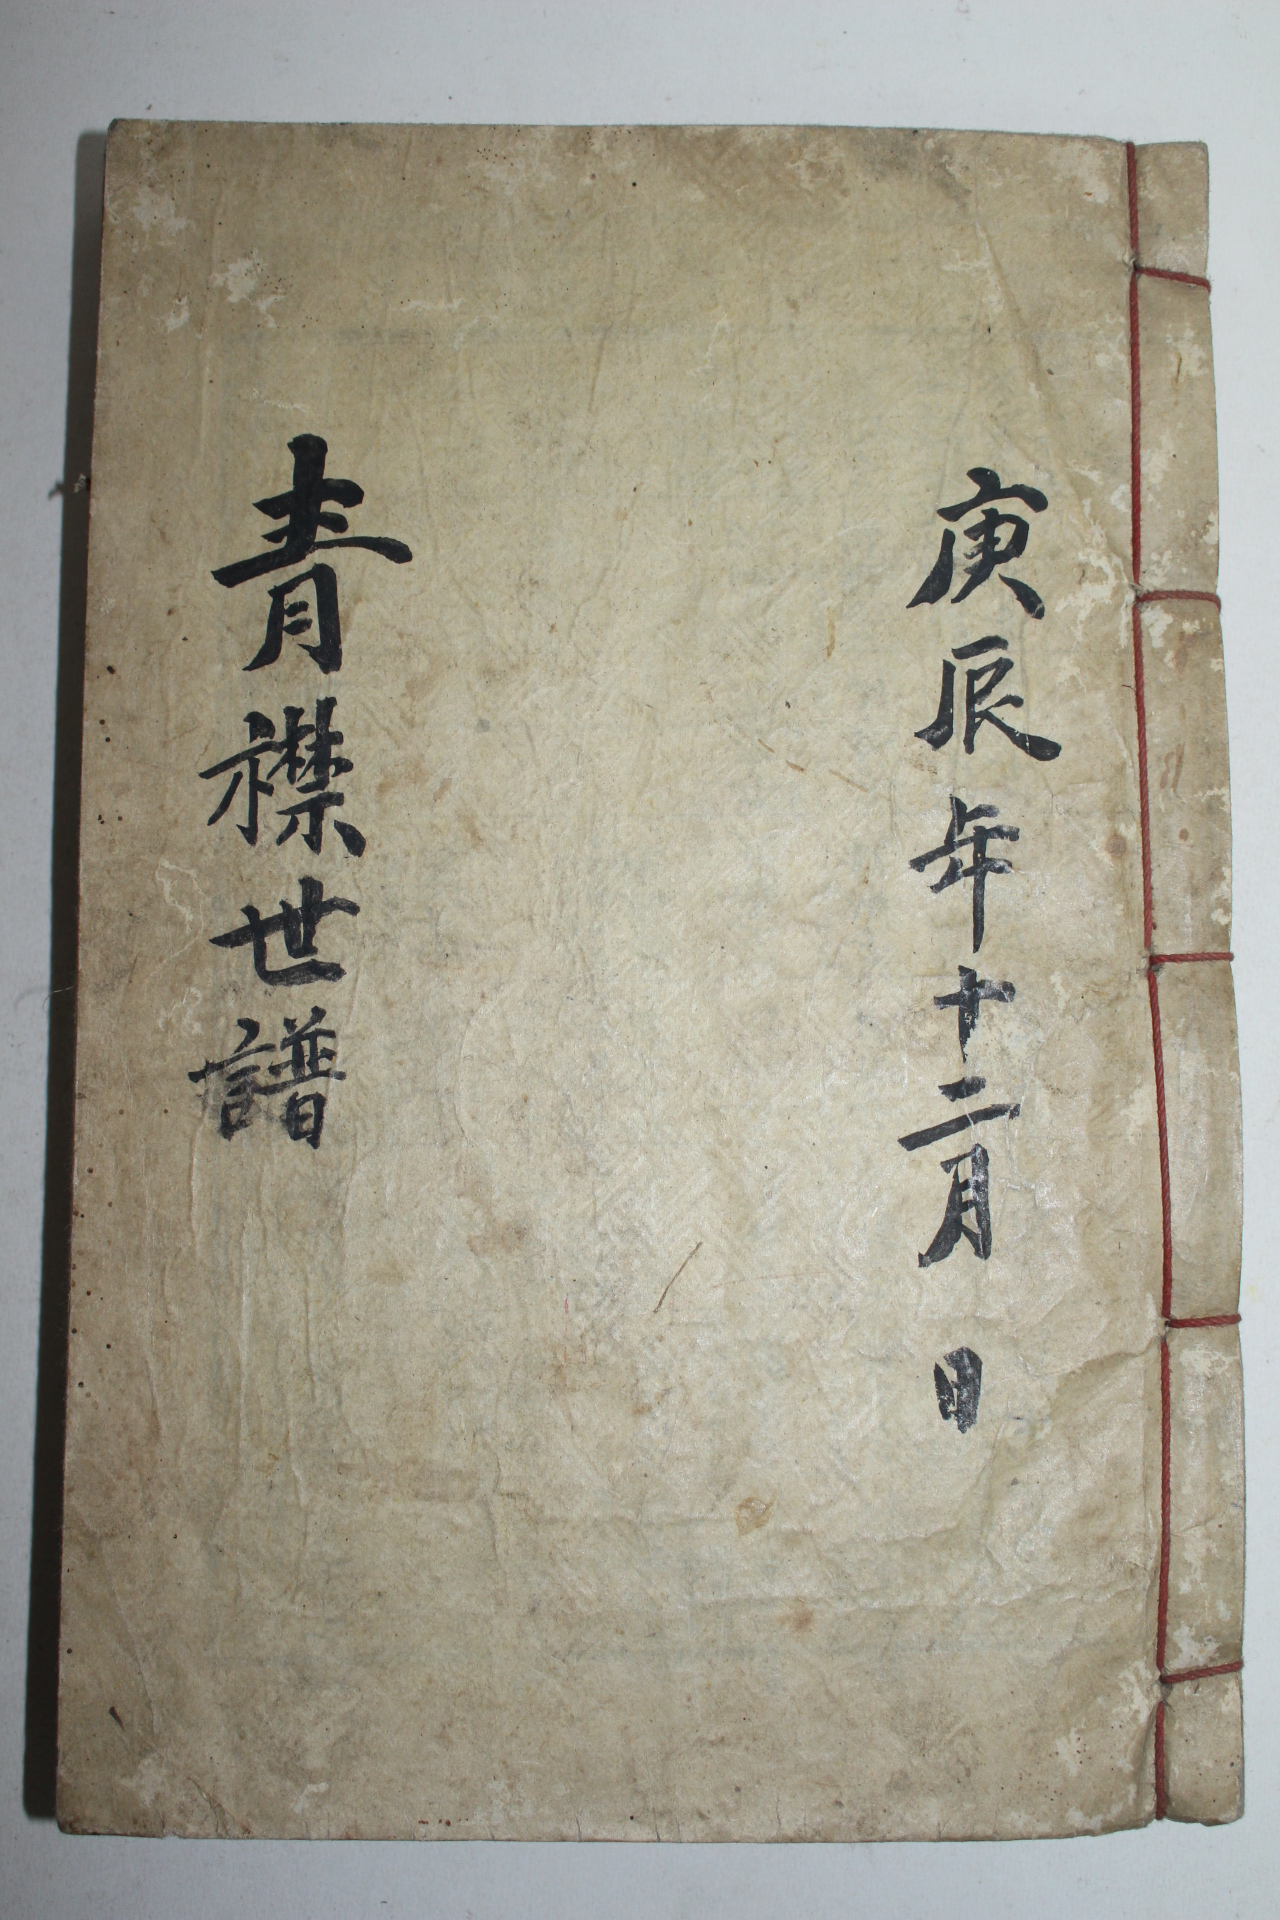 庚辰年十二月 日
青襟世譜